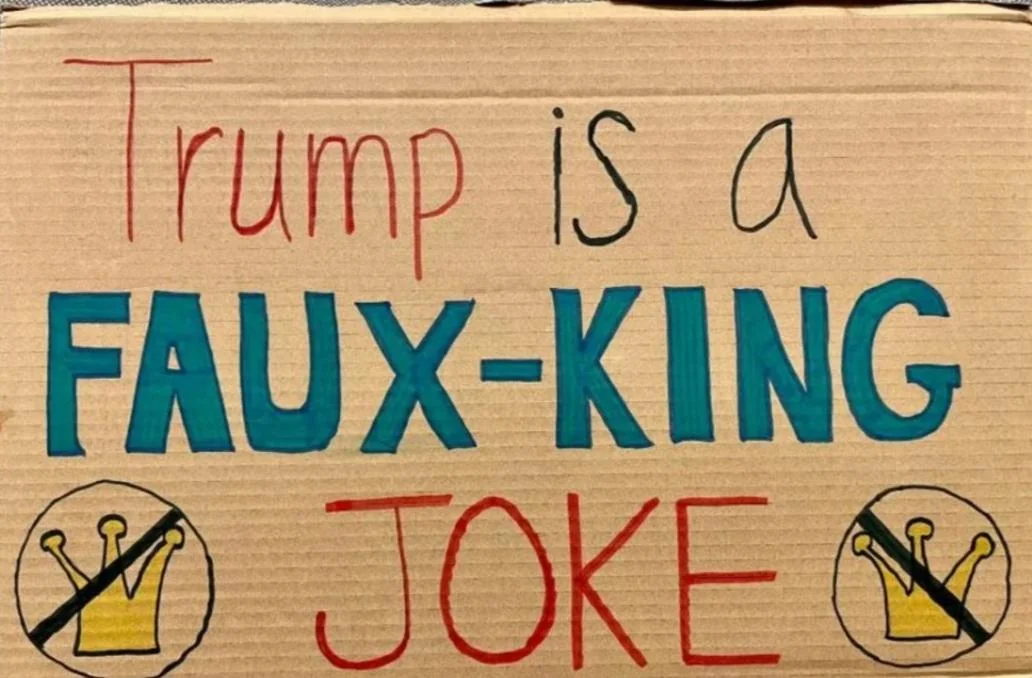 Trump is a
FAUX-KING
JOKE